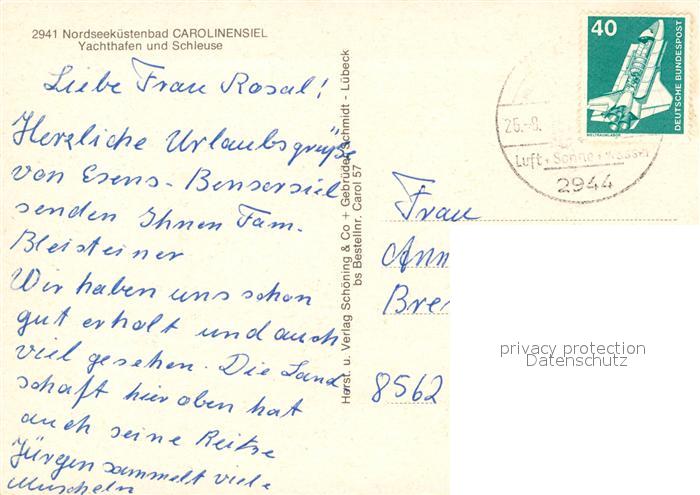 2941 Nordseeküstenbad CAROLINENSIEL
Yachthafen und Schleuse
Liebe Frau Rosal!
Herzliche Urlaubsgrüße
von Esens-Bensersiel
senden Ihnen Fam.
Bleisteiner
Wir haben uns schon
gut erholt und auch
viel gesehen. Die Land
schaft hier oben hat
auch seine Reitze
Jürgen sammelt viele
Muscheln
Horst. u. Verlag Schöning & Co + Gebrüder Schmidt - Lübeck
bs Bestellnr. Carol 57
40
DEUTSCHE BUNDESPOST
WELTRAUMLABOR
25.-8.
Luft + Sonne +
2944
Frau
Ann
Bre
8562
privacy protection
Datenschutz